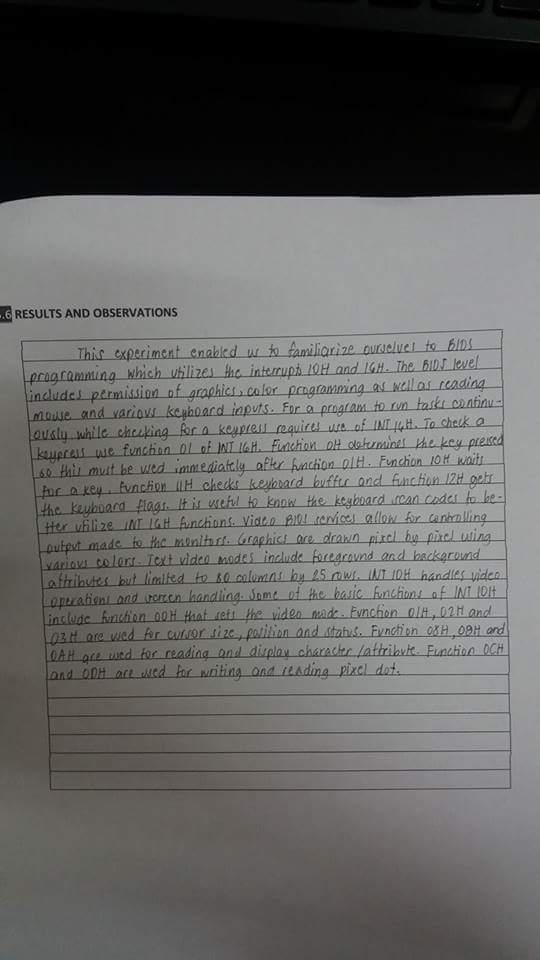 .6 RESULTS AND OBSERVATIONS
This experiment enabled us to familiarize ourselves to BIOS
programming which utilizes the interrupts 10H and 16H. The BIOS level
includes permission of graphics, color programming as well as reading
mouse and various keyboard inputs. For a program to run tasks continu-
ously while checking for a keypress requires use of INT 16H. To check a
keypress use function 01 of INT 16H. Function 0H determines the key pressed
so this must be used immediately after function 01H. Function 10H waits
for a key. Function 11H checks keyboard buffer and function 12H gets
the keyboard flags. It is useful to know the keyboard scan codes to be-
tter utilize INT 16H functions. Video BIOS services allow for controlling
output made to the monitors. Graphics are drawn pixel by pixel using
various colors. Text video modes include foreground and background
attributes but limited to 80 columns by 25 rows. INT 10H handles video
operations and screen handling. Some of the basic functions of INT 10H
include function 00H that sets the video mode. Function 01H, 02H and
03H are used for cursor size, position and status. Function 08H, 09H and
0AH are used for reading and display character/attribute. Function 0CH
and 0DH are used for writing and reading pixel dot.